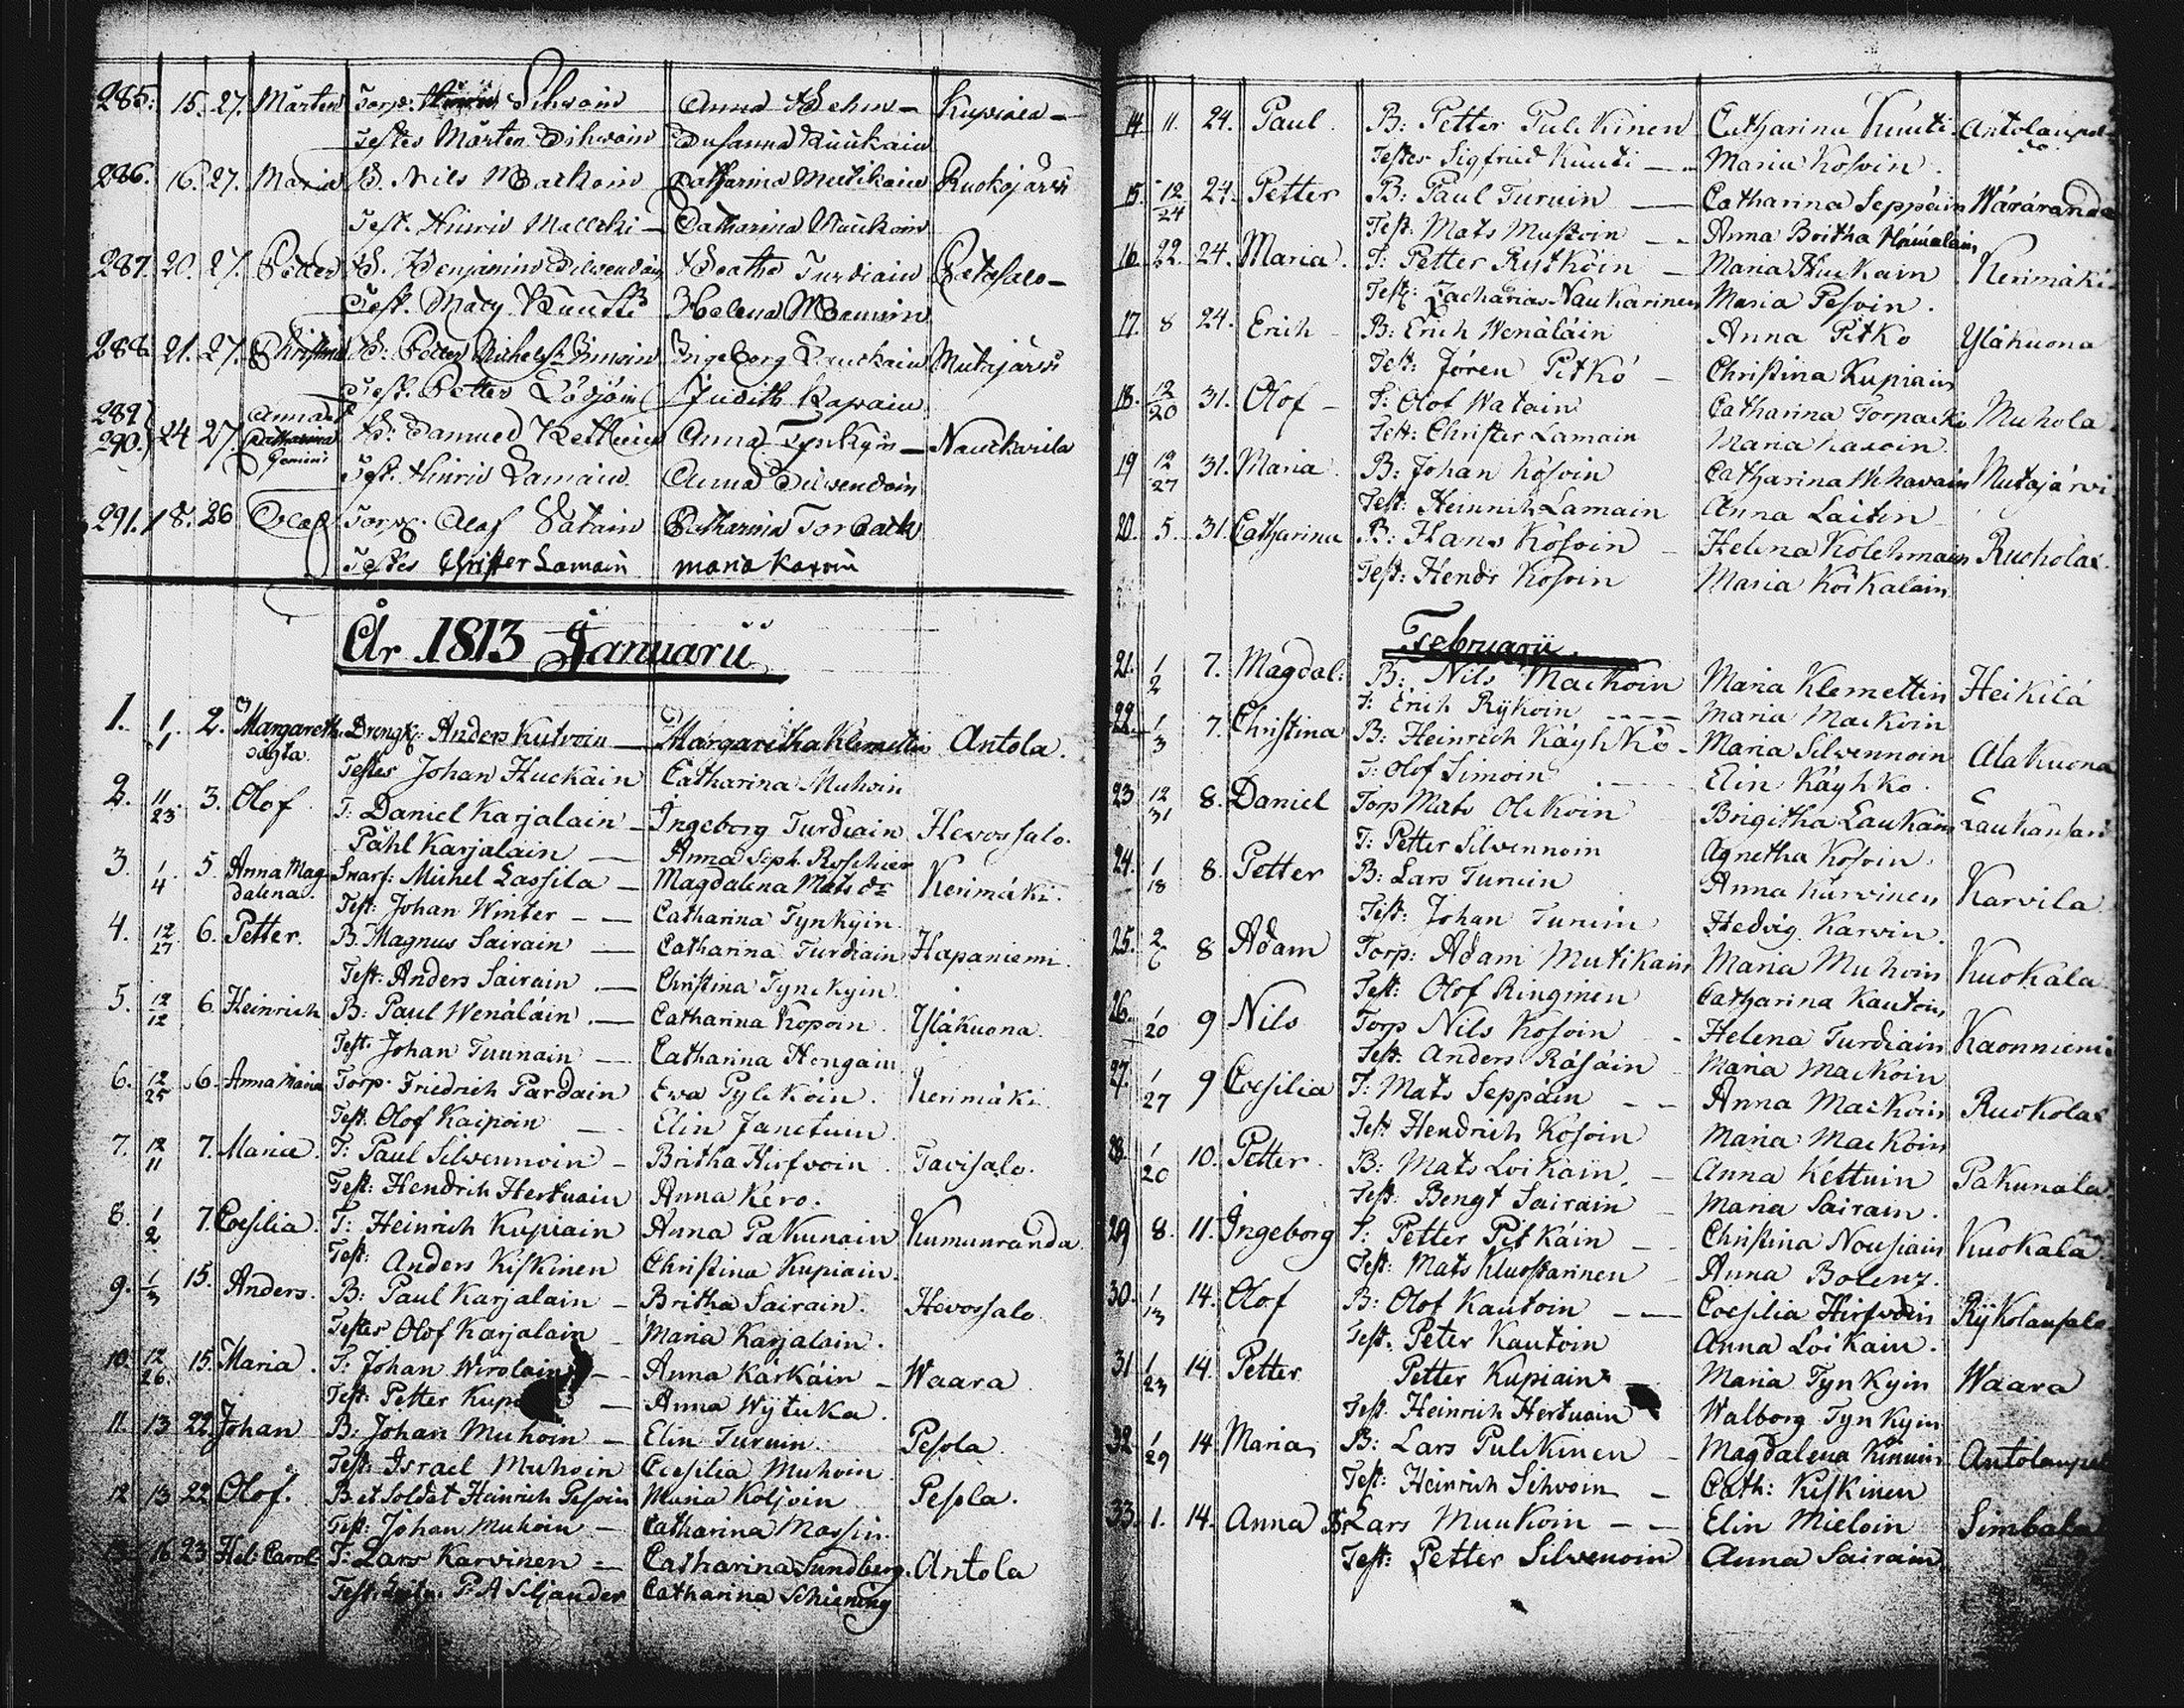 285. 15. 27. Mårten Torp: Silvoin Anna
Testes Mårten Susanna
286. 16. 27. Maria B. Nils Mackoin Catharina Mutikain Ruokojärvi
Test. Hinric Catharina
287. 20. 27. Petter B. Benjamin Beatha Turdiain Petäsalo
Test. Mats Kuutti Helena
288. 21. 27. Christina B: Petter Michelss. Ingeborg Mutajärvi
Test. Petter Judith
289
290. 24 27. Anna et Catharina Gemini B: Samuel Anna Tynkyin Nauckarila
Test. Hinric Lamain Anna Silvendoin
291. 18. 26 Olof Torp. Olof Vatain Catharina Torpack
Testes Christer Lamain Maria Kaxoin
År 1813 Januarii
1. 1/1. 2. Margaretha oägta. Drengk: Anders Kutvoin Margaretha Klemettin Antola.
Testes Johan Huckain Catharina Muhoin
2. 11/23. 3. Olof. T: Daniel Karjalain Ingeborg Turdiain Hevossalo.
Påhl Karjalain Anna Soph. Roschier
3. 1/4. 5. Anna Magdalena. Michel Lassila Magdalena Mats dr Kerimäki.
Test: Johan Winter Catharina Tynkyin
4. 12/27 6. Petter. B. Magnus Sairain Catharina Turdiain Hapaniemi.
Test: Anders Sairain Christina Tynckyin
5. 12/12 6. Heinrich B: Paul Wenäläin Catharina Kopoin. Yläkuona.
Test. Johan Tuunain Catharina Hengain
6. 12/25 6. Anna Maria Torp. Friedrich Pardain Ewa Pylcköin. Kerimäki
Test. Olof Kaipoin Elin Janetuin
7. 12/11 7. Maria. T: Paul Silvennoin Britha Hirfvoin Tavisalo.
Test: Hendrih Hertuain Anna Kero.
8. 1/2 7. Coesilia. T: Heinrich Kupiain Anna Pakunain Kumunranda
Test: Anders Kiskinen Christina Kupiain.
9. 1/3 15. Anders. B: Paul Karjalain Britha Sairain. Hevossalo.
Testes Olof Karjalain Maria Karjalain.
10. 12/26. 15. Maria. T: Johan Wirolain Anna Kärkäin Waara
Test: Petter Anna Wytuka.
11. 13 22. Johan B: Johan Muhoin Elin Turuin. Pesola.
Test: Israel Muhoin Coesilia Muhoin
12 13 22 Olof. B. et Soldat Heinrich Pesoin Maria Koljoin Pesola.
Test: Johan Muhoin Catharina Massin.
13 16 23 Hel: Carol: T: Lars Karvinen Catharina Sundberg. Antola
Test: P. A Siljander Catharina Schiering
14 11. 24. Paul. B: Petter Pulckinen Catharina Kuuti
Testes Sigfried Kuuti Maria Kosoin.
15. 12/24 24. Petter B: Paul Turuin Catharina Seppäin Wäräranda
Test. Mats Mustoin Anna Britha Hämäläin
16. 22. 24. Maria. T: Petter Rytköin Maria Huckain Kerimäki
Test: Zacharias Naukarinen Maria Pesoin.
17. 8 24. Erich B: Erich Wenäläin Anna Pitko Yläkuona
Test: Jören Pitkö Christina Kupiain
18. 12/20 31. Olof T: Olof Watain Catharina Torpacki Muhola
Test: Christer Lamain Maria Kaxoin
19 12/27 31. Maria. B: Johan Kosoin Catharina Ihhavain Mutajärvi
Test: Heinrich Lamain Anna Laitin
20. 5. 31. Catharina B: Hans Kosoin Helena Kolehmain Ruokolax.
Test: Hendr Kosoin Maria Koikalain
Februarii.
21. 1/2 7. Magdal: B: Nils Mackoin Maria Klemettin Heikilä
T: Erich Rykoin Maria Mackoin
22. 1/3 7. Christina B: Heinrich Käyhkö Maria Silvennoin Alakuona
T: Olof Simoin Elin Käyhkö.
23 12/31 8. Daniel Torp Mats Olckoin Brigitha Laukain
T: Petter Silvennoin Agnetha Kosoin.
24. 1/18 8. Petter B: Lars Turuin Anna Karvinen Karvila
Test: Johan Turuin Hedvig Karvin.
25. 2/6 8 Adam Torp: Adam Mutikain Maria Muhoin Kuokala
Test: Olof Ringinen Catharina Kautoin
26. 1/20 9 Nils Torp Nils Kosoin Helena Turdiain Kaonniemi
Test: Anders Räsäin Maria Mackoin
27. 1/27 9 Coesilia T: Mats Seppäin Anna Mackoin Ruokolax
Test Hendrich Kosoin Maria Mackoin
28. 1/20 10. Petter. B: Mats Loikain Anna Kettuin Pakunala
Test: Bengt Sairain Maria Sairain.
29 8. 11. Ingeborg T: Petter Pitkäin Christina Nousiain Kuokala.
Test: Mats Kluostarinen Anna Bolenz.
30. 1/13 14. Olof B: Olof Kautoin Coesilia Hirfvoin
Test. Peter Kautoin Anna Loikain.
31 1/23 14. Petter Petter Kupiain Maria Tynkyin Waara
Test. Heinrich Hertuain Walborg Tynkyin
32 1/29 14 Maria B: Lars Pulckinen Magdalena Kinnuin
Test: Heinrich Silvoin Cath: Kiskinen
33. 1. 14. Anna B: Lars Muukoin Elin Mieloin Simbala
Test: Petter Silvenoin Anna Sairain